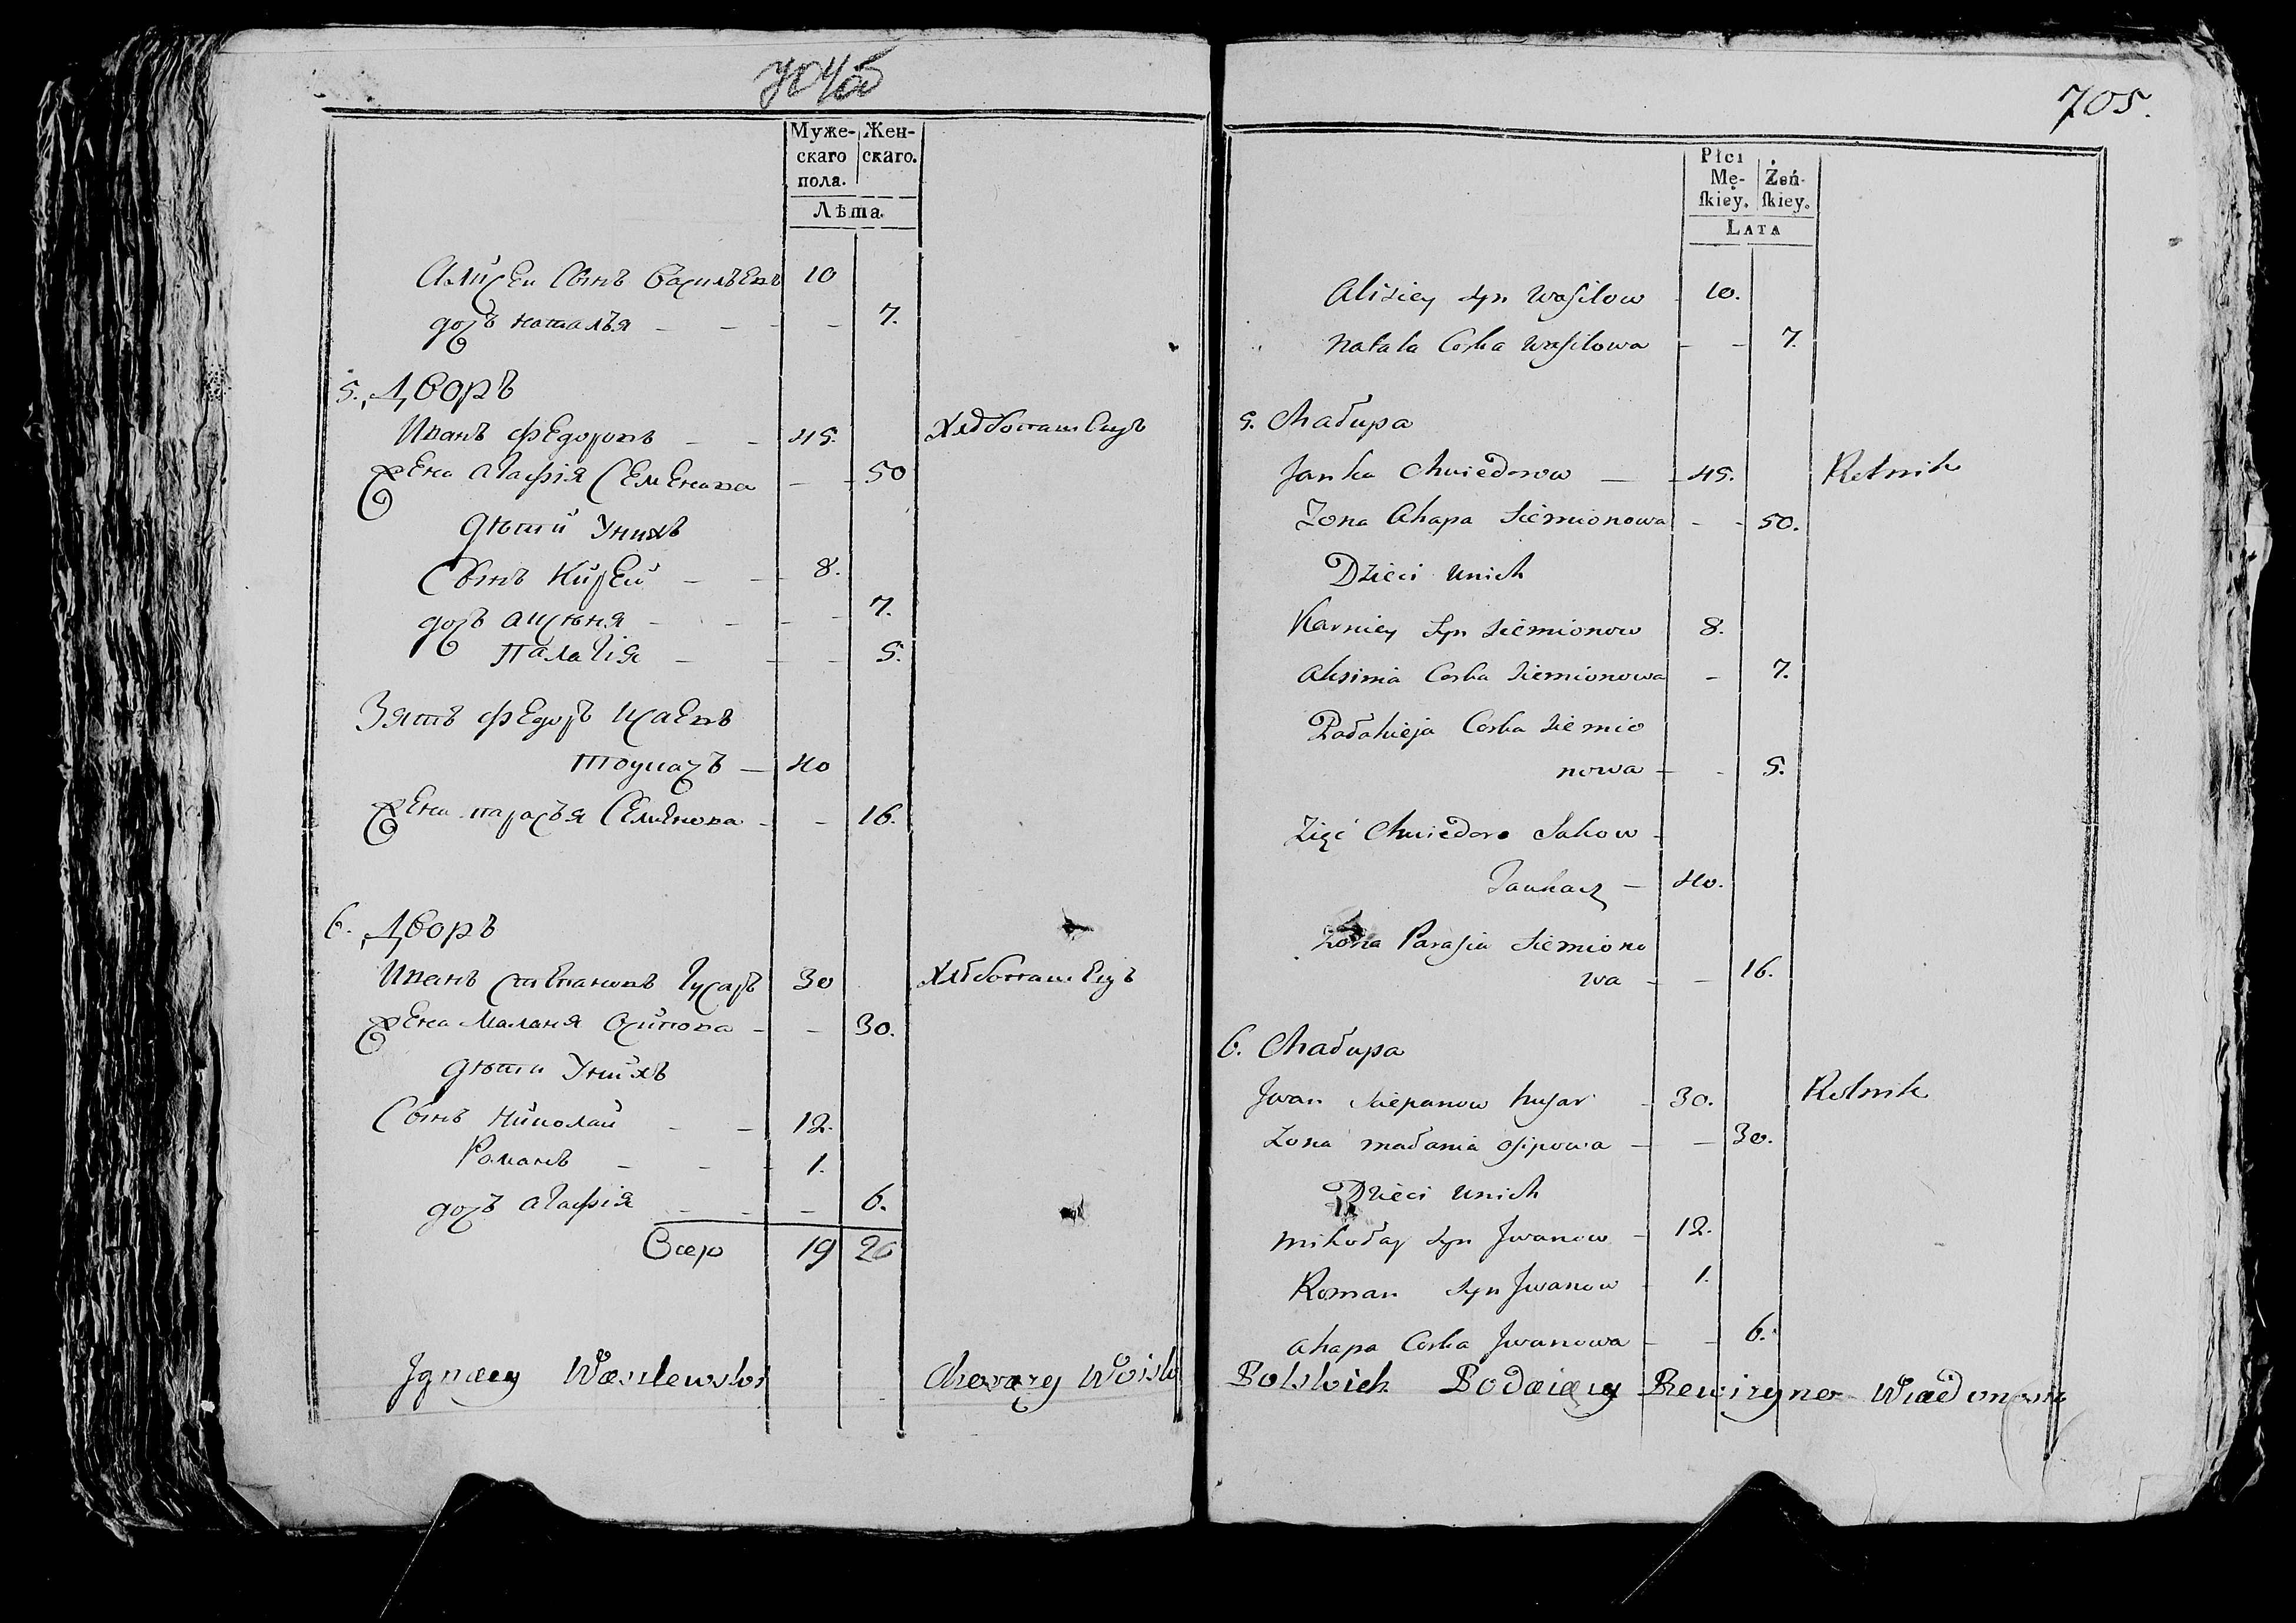 704об
Муже- Жен-
скаго скаго.
пола.
Лѣта.
Алисеи Сынъ Васильевъ 10
дочъ Наталъя - - - - 7.
5. Дворъ
Иванъ Федоровъ - - 45. Хлѣбопашецъ
Жена Агафія Семенова - - 50
дѣти Унихъ
Сынъ Кирей - - 8.
дочъ Аксѣня - - - - 7.
Палагія - - - 5.
Зять Федоръ Исаевъ
- 40
Жена парасъя Семенова - - 16.
6. Дворъ
Иванъ степановъ Гусаръ 30 Хлѣбопашецъ
Жена Маланя Осипова - - 30.
дѣти Унихъ
Сынъ Николай - - 12.
Романъ - - - 1.
дочъ агафія - - - 6.
Всего 19 26
Jgnacy Wasilewski Chorąży Woisk
705.
Płci
Mę- Żeń-
ſkiey. ſkiey.
LATA
Alisiey syn Wasilow - 10.
Natala Corka Wasilowa - - 7.
5. Chałupa
Janka Chwiedorow - - 45. Rolnik
Zona Ahapa Siemionowa - - 50.
Dzieci unich
Karniey Syn Siemionow 8.
Aksinia Corka Siemionowa - 7.
Pałahieja Corka Siemio
nowa - - 5.
Zięć Chwiedor Sakow -
- 40.
Zona Parasia Siemiono
wa - - 16.
6. Chałupa
Jwan Sciepanow husar - 30. Rolnik
Zona małania osipowa - - 30.
Dzieci unich
mikołay Syn Jwanow - 12.
Roman Syn Jwanow - 1.
ahapa Corka Jwanowa - - 6.
Polskich